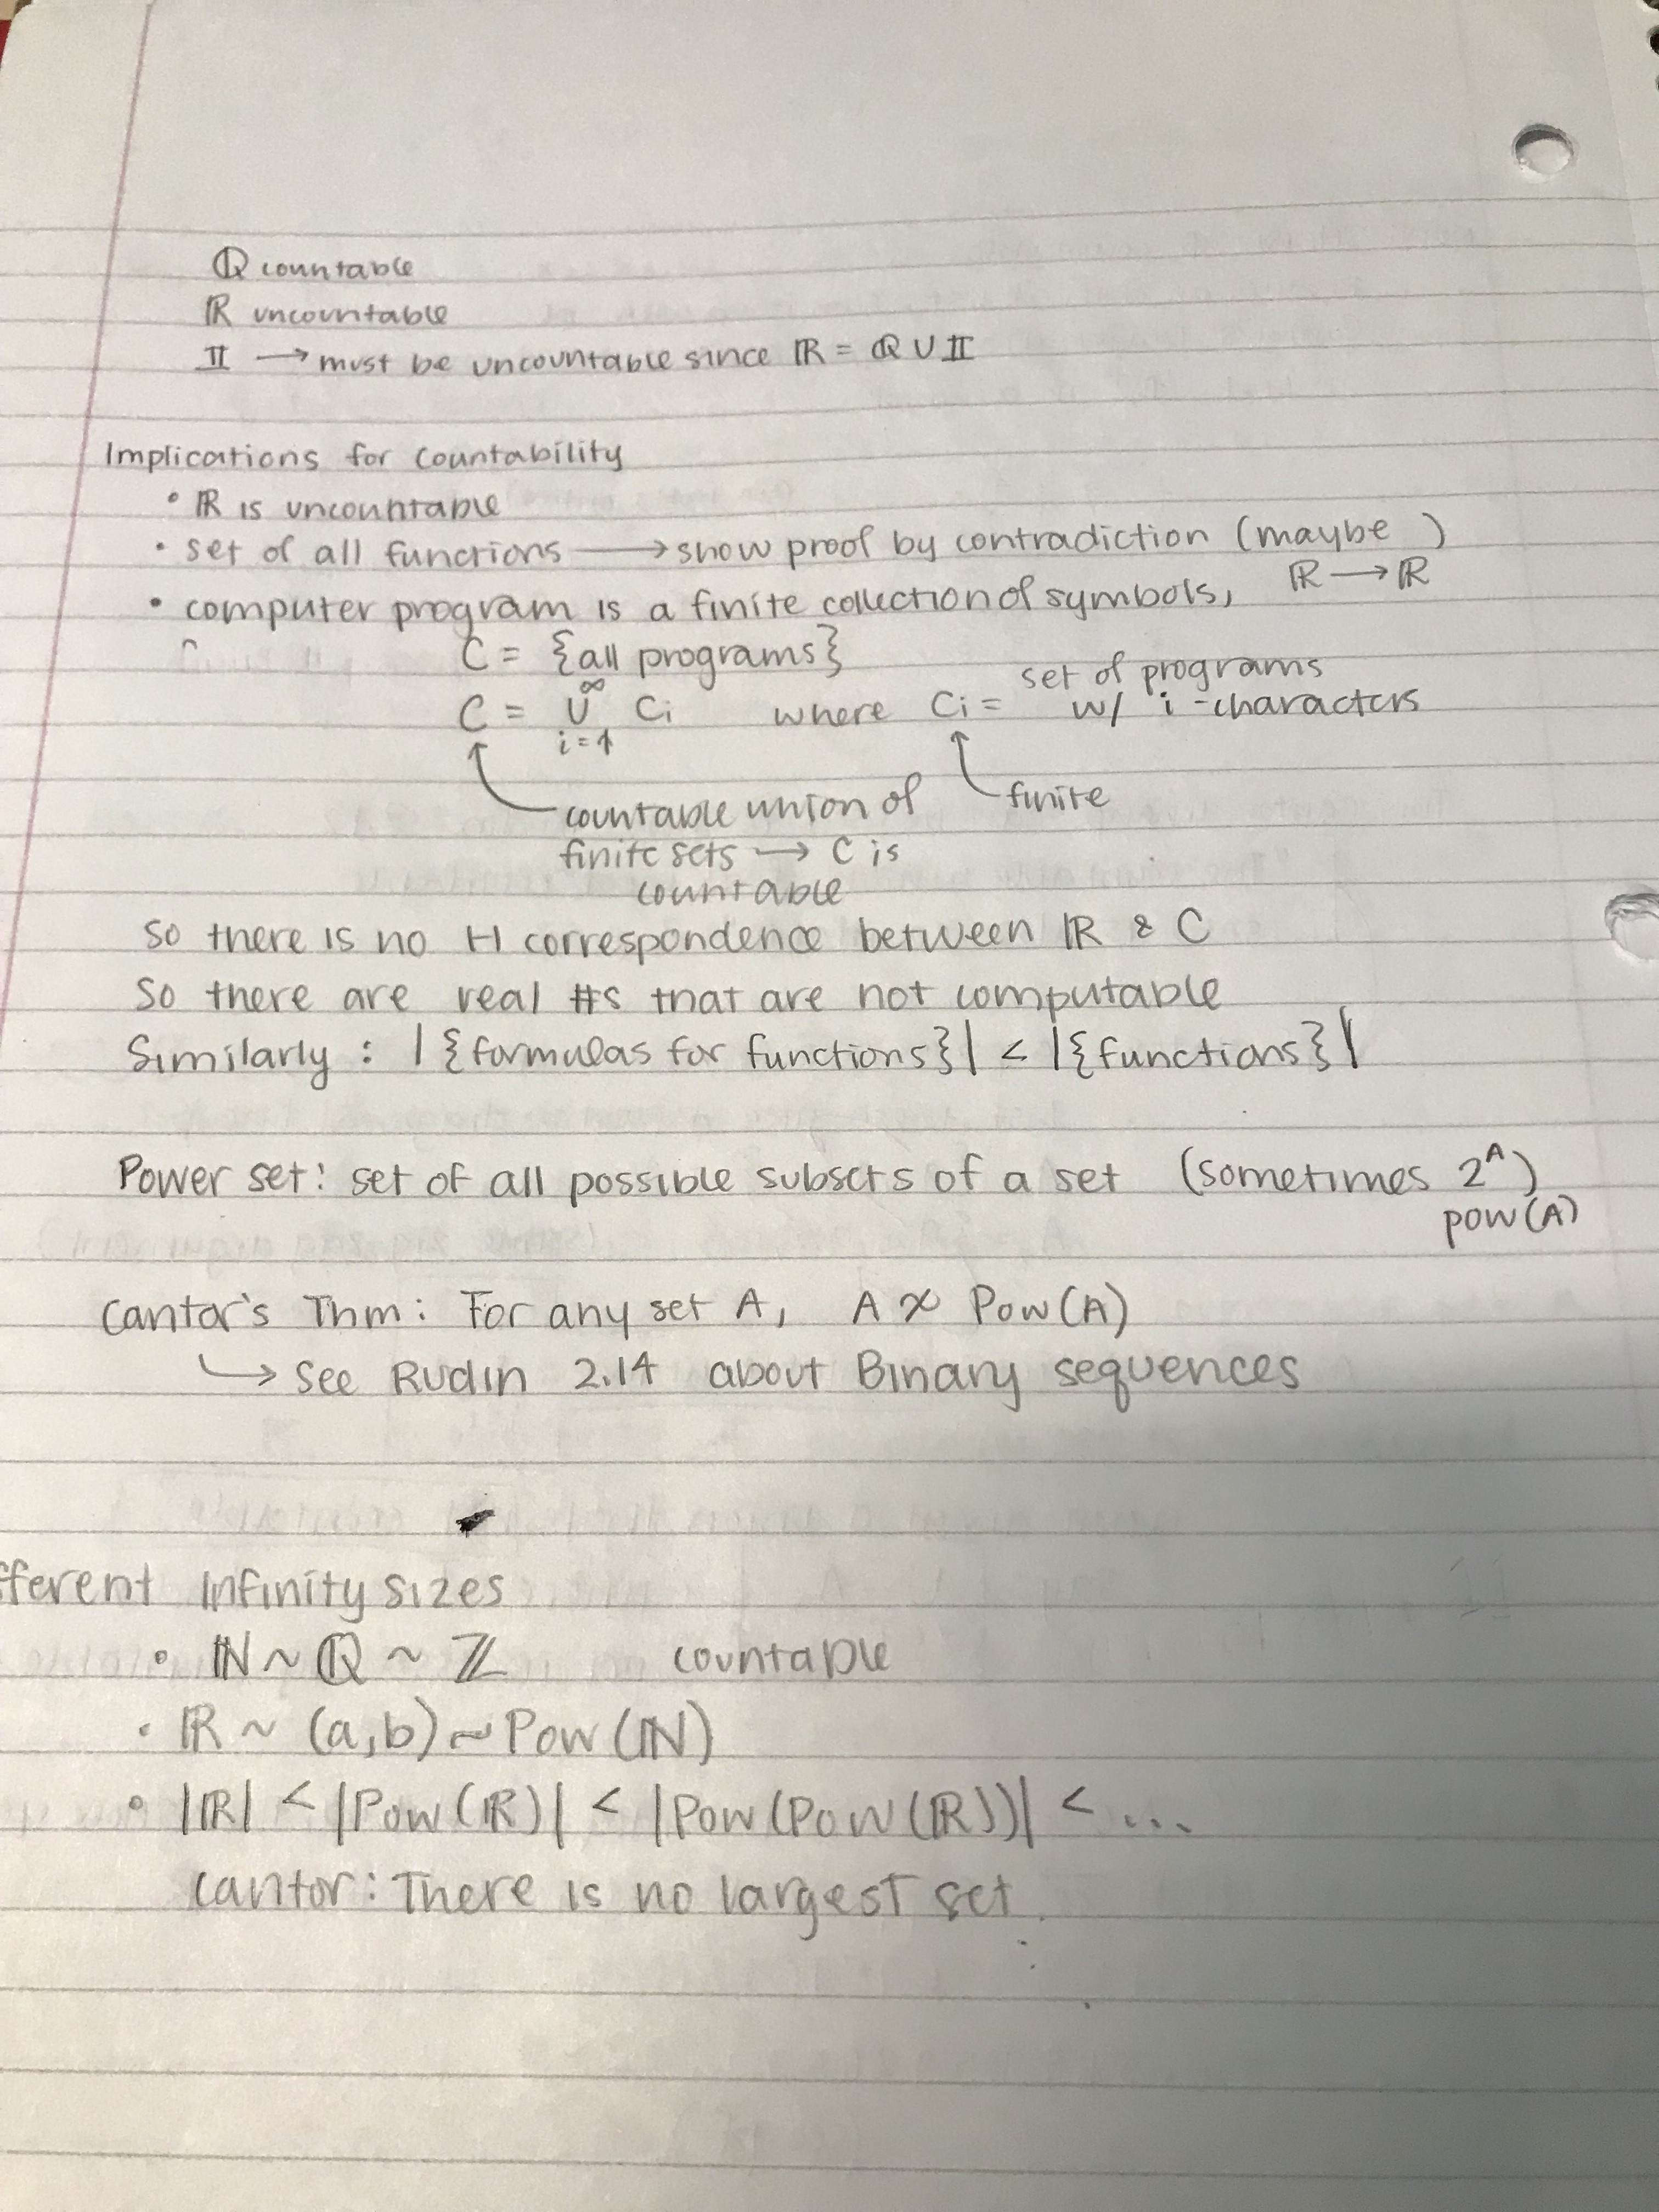 ℚ countable
ℝ uncountable
𝕀 → must be uncountable since ℝ = ℚ ∪ 𝕀
Implications for countability
• ℝ is uncountable
• set of all functions → show proof by contradiction (maybe )
ℝ → ℝ
• computer program is a finite collection of symbols,
C = {all programs}
C = ∞ ∪ i=1 Ci where Ci = set of programs
w/ i-characters
↑ countable union of ↑ finite
finite sets → C is
countable
So there is no 1-1 correspondence between ℝ & C
So there are real #s that are not computable
Similarly : |{formulas for functions}| < |{functions}|
Power set: set of all possible subsets of a set (sometimes 2^A)
pow(A)
Cantor's Thm: For any set A, A ≁ Pow(A)
↳ See Rudin 2.14 about Binary sequences
fferent Infinity sizes
• ℕ ~ ℚ ~ ℤ countable
• ℝ ~ (a,b) ~ Pow(ℕ)
• |ℝ| < |Pow(ℝ)| < |Pow(Pow(ℝ))| < ...
Cantor: There is no largest set.